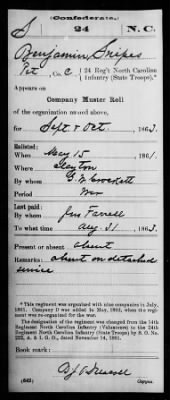 (Confederate.)
S 24 N.C.
Benjamin Snipes
Pvt, Co. C, 24 Reg't North Carolina
Infantry (State Troops).*
Appears on
Company Muster Roll
of the organization named above,
for Sept & Oct, 1863.
Enlisted:
When May 15, 1861.
Where Clayton
By whom
Period War
Last paid:
By whom Jas Farrell
To what time Aug 31, 1863.
Present or absent absent
Remarks: absent on detached
service
*This regiment was organized with nine companies in July,
1861. Company D was added in May, 1862, when the regi-
ment was re-organized for the war.
The designation of this regiment was changed from the 14th
Regiment North Carolina Infantry (Volunteers) to the 24th
Regiment North Carolina Infantry (State Troops) by S. O. No.
222, A. & I. G. O., dated November 14, 1861.
Book mark:
(642) Copyist.